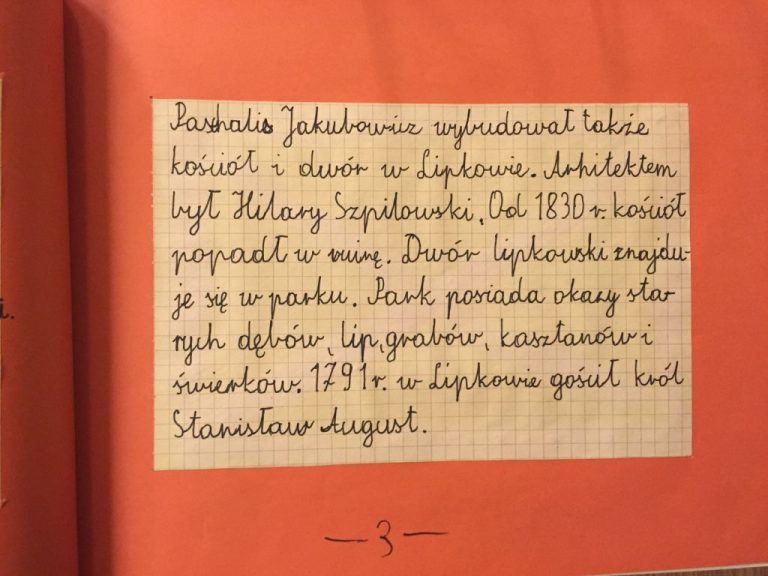 Paschalis Jakubowicz wybudował także
kościół i dwór w Lipkowie. Arhitektem
był Hilary Szpilowski. Od 1830 r. kościół
popadł w ruinę. Dwór lipkowski znajdu-
je się w parku. Park posiada okazy sta-
rych dębów, lip, grabów, kasztanów i
świerków. 1791 r. w Lipkowie gościł król
Stanisław August.
— 3 —